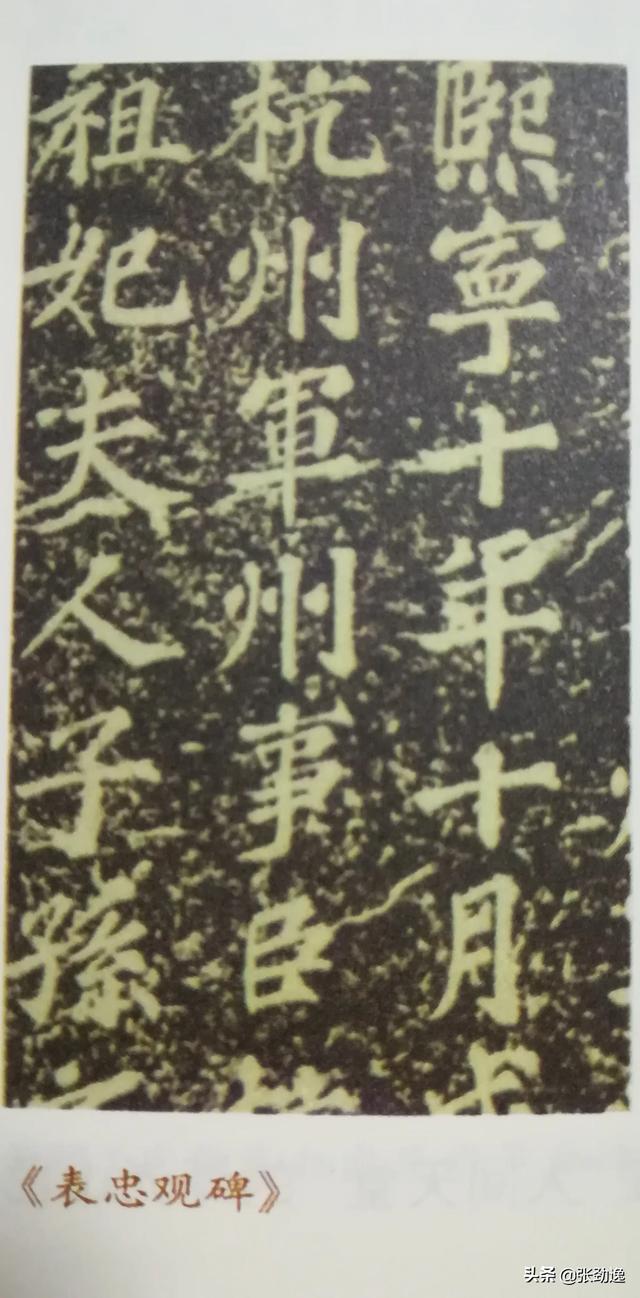 熙寧十年十月
杭州軍州事臣
祖妃夫人子孫
《表忠观碑》
头条 @张劲逸